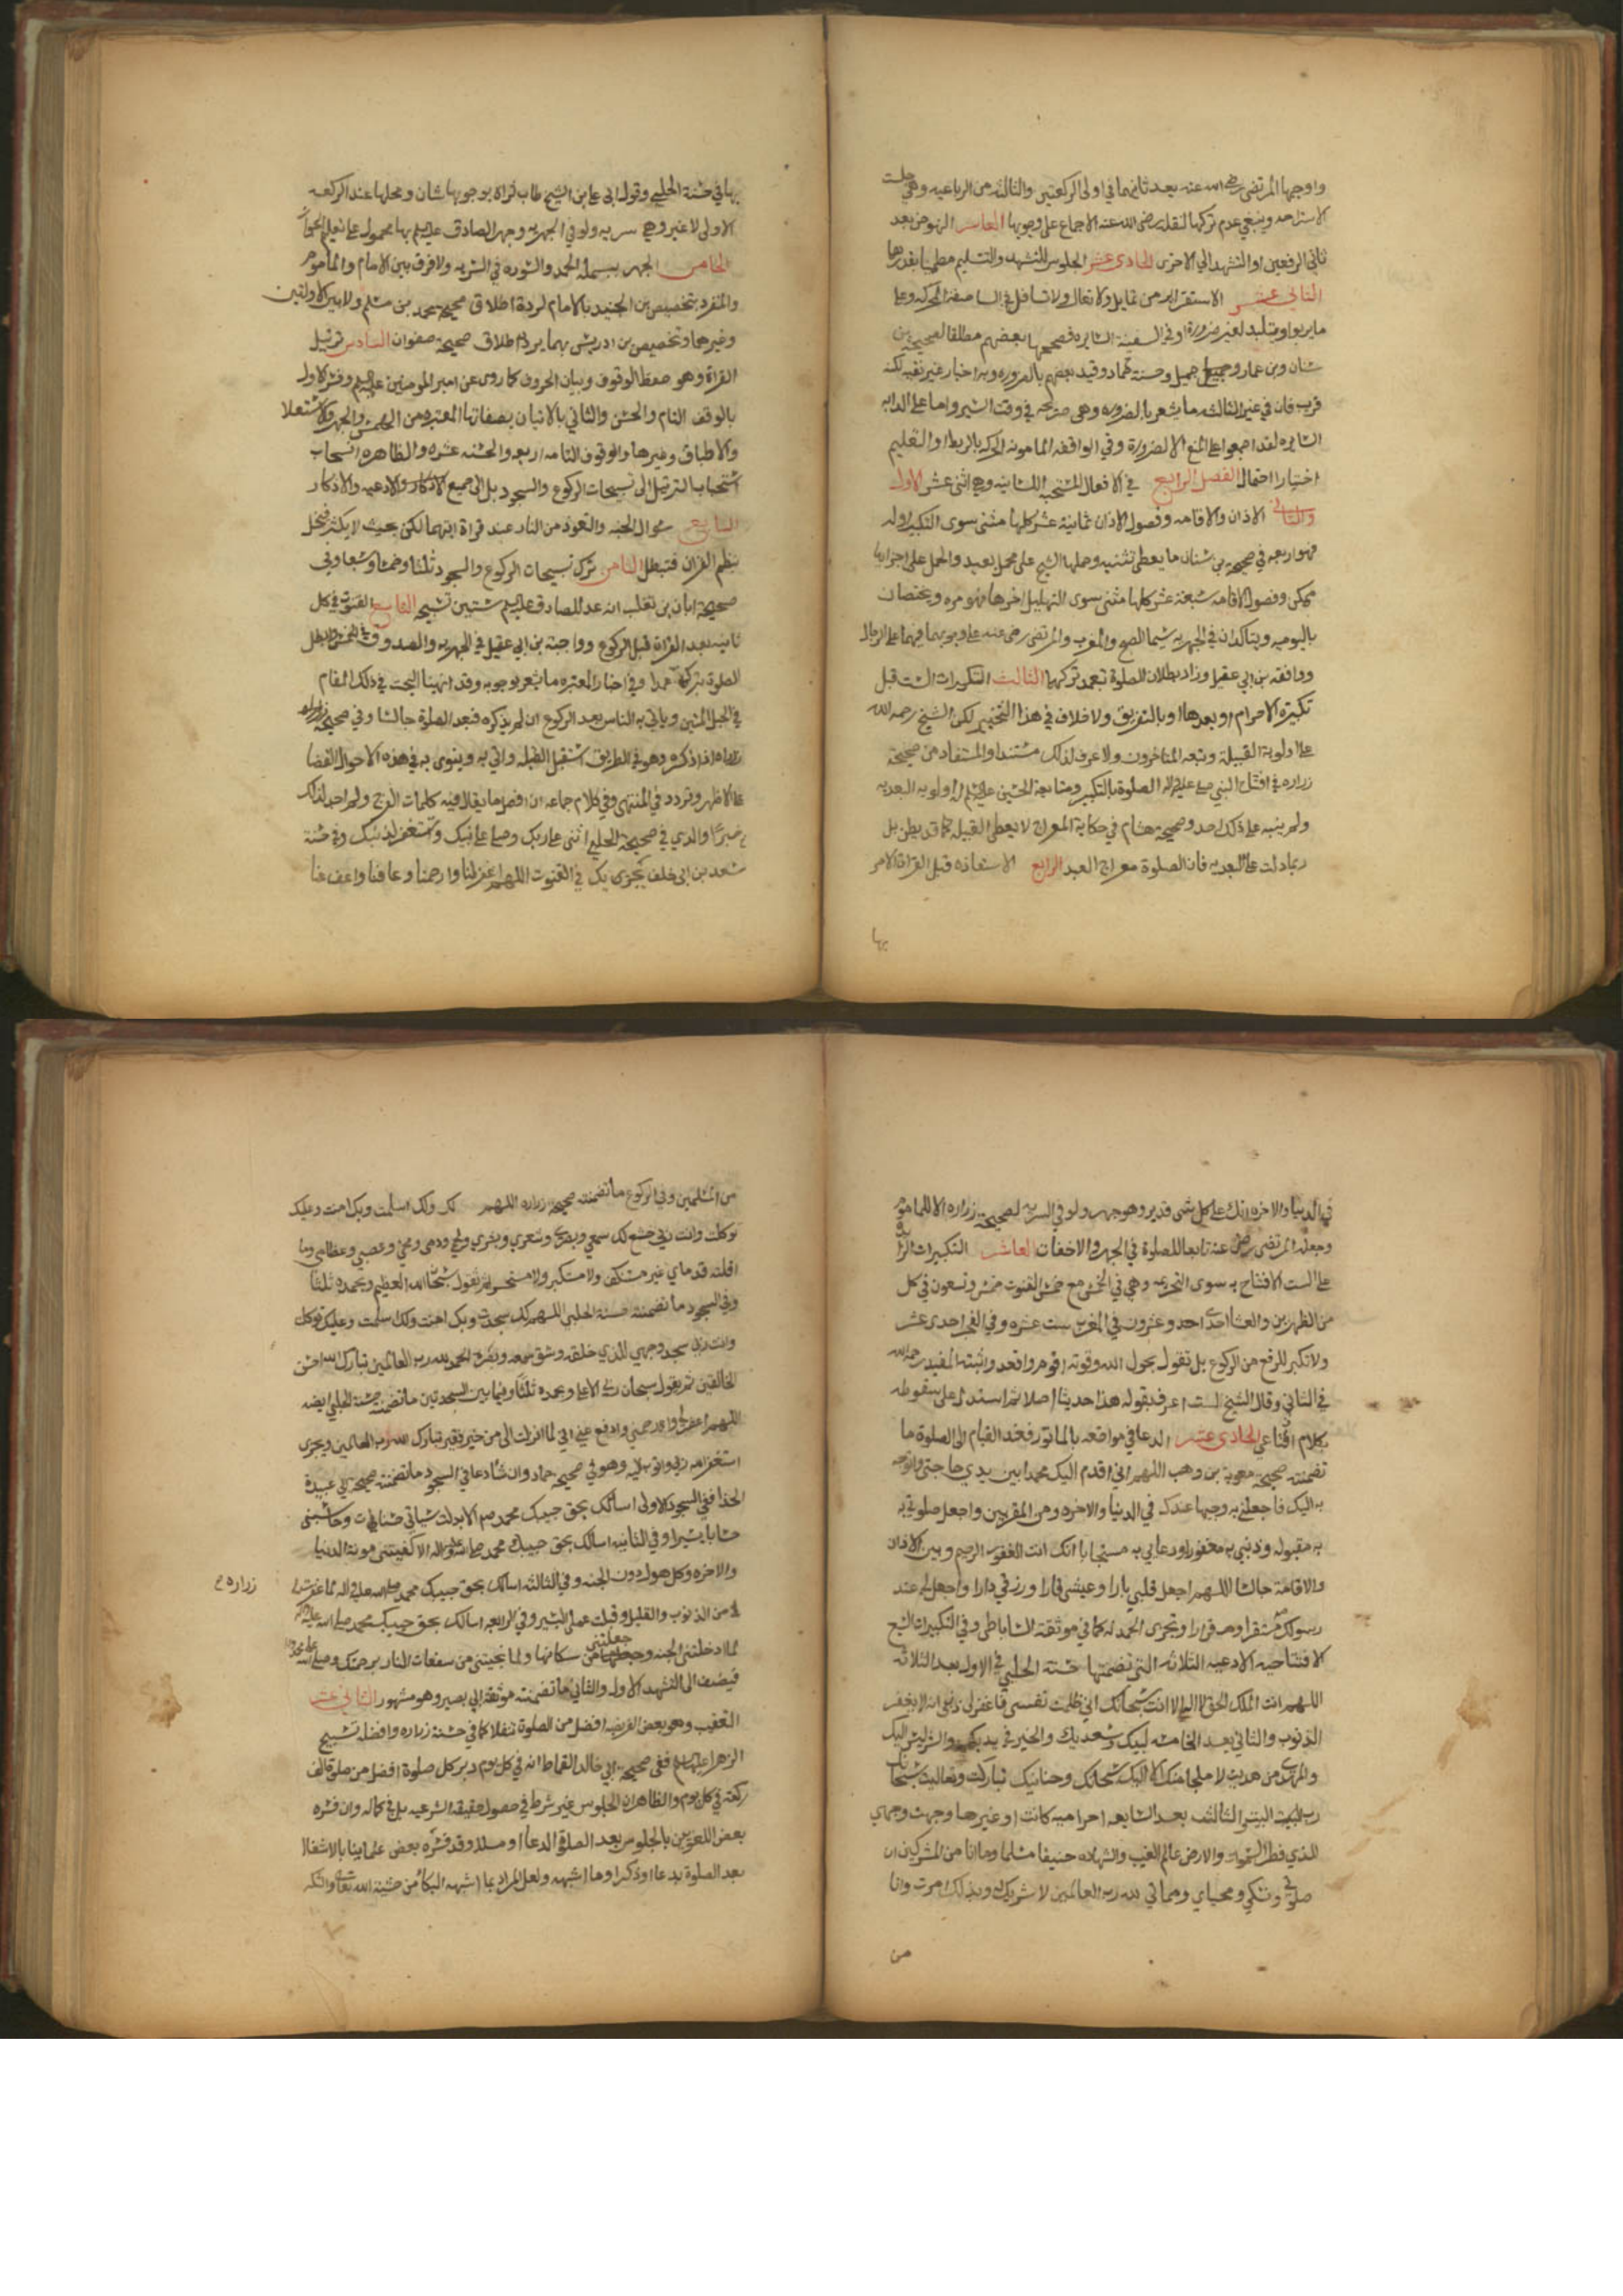 واوجبها المرتضى رضي الله عنه بعد ثانيهما في اولى الركعتين والثالثة من الرباعيه وهي جلسة
الاستراحه وينبغي عدم تركها لنقله رضى الله عنه الاجماع على وجوبها العاشر النهوض بعد
ثاني الرفعين او التشهد الي الاخرى الحادى عشر الجلوس للتشهد والتسليم مطمئنا بقدرها
الثاني عشر الاستقرار من تمايل ولا تعال ولا تسافل في
لغير ضرورة وفي السفينه السايره فصححها بعضهم مطلقا لصحيحة بن
سنان وبن عمار وجميل وحسنة حماد وقيد بعضهم بالضروره وبه اخبار غير نقيه لكنه
قريب فان في غير الثالثه ما يشعر بالضروره وهي صريحه في وقت السير واما على الدابه
السايره لقد اجمعوا على المنع الا لضرورة وفي الواقفه المامونه الحركه بالربط او التعليم
اختيارا احتمال الفصل الرابع في الافعال المستحبه اللسانيه وهي اثنى عشر الاول
والثاني الاذان والاقامه وفصول الاذان ثمانية عشر كلها مثنى سوى التكبير اوله
فهو اربعه في صحيحه بن سنان ما يعطى تثنيه وحملها الشيخ على محمل بعيد والحمل على اجزايها
ممكن وفصول الاقامه سبعة عشر كلها مثنى سوى التهليل اخرها فهو مره ويختصان
باليوميه ويتاكدان في الجهريه سيما الصبح والمغرب والمرتضى رضى عنه على وجوبهما فيهما على الرجال
ووافقه بن ابي عقيل وزاد بطلان الصلوة بتعمد تركهما الثالث التكبيرات الست قبل
تكبيرة الاحرام او بعدها او بالتفريق ولا خلاف في هذا التخيير لكن الشيخ رحمه الله
على اولوية القبيلة وتبعه المتاخرون ولا عرف لذلك مستندا والمستفاد من صحيحة
زراره في افتتاح النبي صلى عليه واله الصلوة بالتكبير ومتابعة الحسين عليه السلم له اولويه البعديه
ولم ينبه على ذلك احد وصحيحة هشام في حكاية المعراج لا يعطى القبيله كما قد يظن بل
ربما دلت على البعديه فان الصلوة معراج العبد الرابع الاستعاذه قبل القراة للامر
بها
بها في حسنة الحلبي وقول ابى على ابن الشيخ طاب ثراه بوجوبها شاذ ومحلها عند الركعه
الاولى لا غير وهي سريه ولو في الجهريه وجهر الصادق عليه السلم بها محمول على تعليم الجواز
الخامس الجهر ببسملة الحمد والسوره في السريه ولا فرق بين الامام والماموم
والمنفرد بتخصيص بن الجنيد بالامام لرده اطلاق صحيحة محمد بن مسلم ولا بين الاولتين
وغيرها وتخصيص بن ادريس بهما يرده اطلاق صحيحة صفوان السادس ترتيل
القراة وهو حفظ الوقوف وبيان الحروف كما روى عن امير المومنين عليه السلم وفسر الاول
بالوقف التام والحسن والثاني بالاتيان بصفاتها المعتبره من الهمس والجهر والاستعلا
والاطباق وغيرها والوقوف التامه اربعه والحسنه عشره والظاهر انسحاب
استحباب الترتيل الى تسبيحات الركوع والسجود بل الى جميع الاذكار والادعيه والاذكار
السابع سوال الجنه والتعوذ من النار عند قراة ايتهما لكن بحيث لا يكثر فيخل
بنظم القران فتبطل الثامن تركن تسبيحات الركوع والسجود ثلثا وخمسا وسبعا وفي
صحيحة ابان بن تغلب انه عد للصادق عليه السلم ستين تسبيحه التاسع القنوت في كل
ثانيه بعد القراة قبل الركوع وواجبة بن ابي عقيل في الجهريه والصدوق في الخمس
الصلوة بتركه عمدا وفي اخبار المعتبره ما يشعر بوجوبه وقد انهينا البحث في ذلك المقام
في الحبل المتين وياتي به الناس بعد الركوع ان لم يذكره فبعد الصلوة جالسا وفي صحيحه زراره
اذا ذكره وهو في الطريق استقبل القبله واتى به وينوى به في هذه الاحوال القضا
على الاظهر وتردد في المنتهى وفي كلام جماعه ان افضل ما يقال فيه كلمات الفرج ولم اجد لذلك
خبرا والذي في صحيحة الحلبي اثنى على ربك وصل على نبيك وتستغفر لذنبك وفي حسنة
سعد بن ابي خلف يجزى بك في القنوت اللهم اغفر لنا وارحمنا وعافنا واعف عنا
في الدنيا والاخره انك على كل شى قدير وهو جهر ولو في السريه لصحيحة زراره الا للماموم
وجعله المرتضى رضي عنه تابعا للصلوة في الجهر والاخفات العاشر التكبيرات الزايده
على الست الافتتاحيه سوى التحريمه وهي في الخمس مع خمس القنوت خمس وتسعون في كل
من الظهرين والعشا احدى احد وعشرون في المغرب ست عشره وفي الفجر احدى عشر
ولا تكبر للرفع من الركوع بل تقول بحول الله وقوته اقوم واقعد واثبته المفيد رحمه الله
في الثاني وقال الشيخ لست اعرف بقوله هذا حديثا اصلا ثم استدل على سقوطه
بكلام اقناعي الحادى عشر الدعا في مواضعه بالماثور فعند القيام الى الصلوة ما
تضمنته صحيحة معوية بن وهب اللهم اني اقدم اليك محمدا بين يدي حاجتى واتوجه
به اليك فاجعلني به وجيها عندك في الدنيا والاخره ومن المقربين واجعل صلوتي به
به مقبوله وذنبي به مغفورا ودعايي به مستجابا انك انت الغفور الرحيم وبين الاذان
والاقامة جالسا اللهم اجعل قلبي بارا وعيشى قارا ورزقي دارا واجعل لي عند
رسولك مستقرا وقرارا وتجزى الحمد لله كما في موثقة الساباطى وفي التكبيرات السبع
الافتتاحيه الادعيه الثلاثه التي تضمنتها حسنة الحلبي في الاول بعد الثلاثه
اللهم انت الملك الحق لا اله الا انت سبحانك اني ظلمت نفسى فاغفر لي ذنبي انه لا يغفر
الذنوب والثاني بعد الخامسه لبيك وسعديك والخير في يديك والشر ليس اليك
والمهدي من هديت لا ملجا منك الا اليك سبحانك وحنانيك تباركت وتعاليت سبحانك
رب البيت الثالث بعد السابعه احراميه كانت او غيرها وجهت وجهي
للذي فطر السموات والارض عالم الغيب والشهاده حنيفا مسلما وما انا من المشركين ان
صلوتي ونسكي ومحياي ومماتي لله رب العالمين لا شريك له وبذلك امرت وانا
من
من المسلمين وفي الركوع ما تضمنته صحيحة زراره اللهم لك ولك اسلمت وبك امنت وعليك
توكلت وانت ربي خشع لك سمعي وبصري وشعري وبشري ولحمي ودمي ومخي وعصبي وعظامي وما
اقلته قدماي غير مستنكف ولا مستكبر ولا مستحسر ثم تقول سبحان الله العظيم وبحمده ثلثا
وفي السجود ما تضمنته حسنة الحلبي اللهم لك سجدت وبك امنت ولك اسلمت وعليك توكلت
وانت ربي سجد وجهي للذي خلقه وشق سمعه وبصره الحمد لله رب العالمين تبارك الله احسن
الخالقين ثم يقول سبحان ربي الاعلى وبحمده ثلثا وفيما بين السجدتين ما تضمنته حسنة الحلبي ايضه
اللهم اغفر لي وارحمني وادفع عني اني لما انزلت الى من خير فقير تبارك الله رب العالمين ويجزى
استغفر الله ربي واتوب اليه وهو في صحيحة حماد وان شا دعا في السجود ما تضمنته صحيحة ابي عبيدة
الحذا ففي السجود الاولى اسالك بحق حبيبك محمد صلم الا بدلت سيئاتي حسنات وحاسبتنى
حسابا يسيرا وفي الثانيه اسالك بحق حبيبك محمد صلى الله عليه واله الا كفيتنى مونة الدنيا
والاخره وكل هول دون الجنه وفي الثالثه اسالك بحق حبيبك محمد صلى الله عليه واله لما غفرت
لي من الذنوب والقليل وقبلت عملى اليسير وفي الرابعه اسالك بحق حبيبك محمد صلى الله عليه واله
لما ادخلتنى الجنه وجعلتنى من سكانها ولما نجيتنى من سفعات النار برحمتك وصلى الله على محمد واله
فيضف الى التشهد الاول والثاني ما تضمنته موثقة ابي بصير وهو مشهور الثاني عشر
التعقيب وهو بعض الفريضه افضل من الصلوة تنفلا كما في حسنة زراره وافضله تسبيح
الزهرا عليها السلم ففي صحيحة ابي خالد القماط انه في كل يوم دبر كل صلوة افضل من صلوة الف
ركعه في كل يوم والظاهر ان الجلوس غير شرط في حصول حقيقته الشرعيه بل في كماله وان فسره
بعض اللغويين بالجلوس بعد الصلوة لدعا او مسلة وقد فسره بعض علماينا بالاشتغال
بعد الصلوة بدعا او ذكر او ما اشبهه ولعل المراد بما اشبهه البكا من خشية الله تعالى والتفكر
زراره